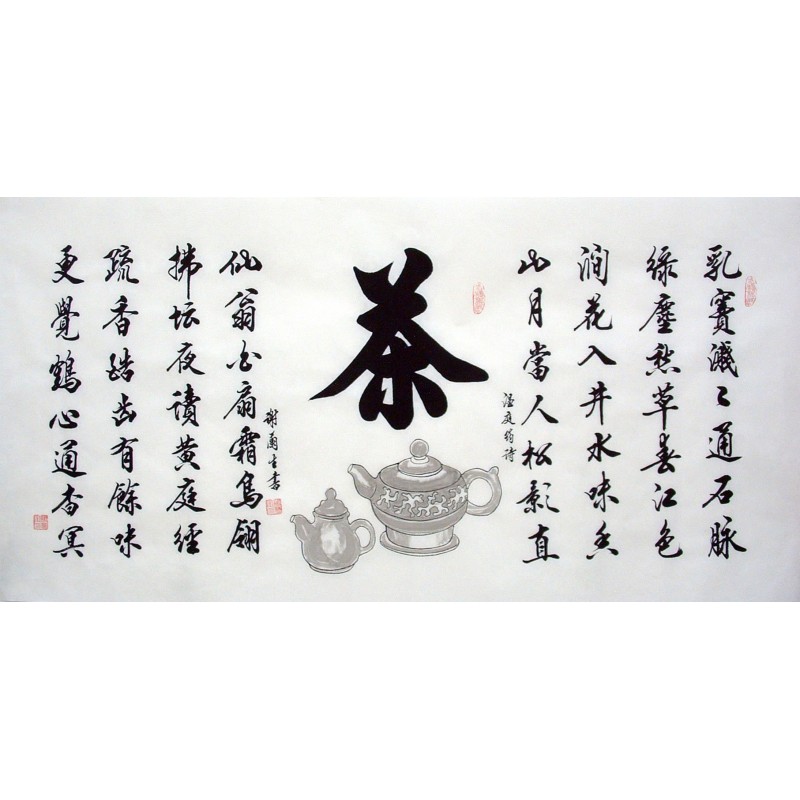 乳賽濺々通石脉
綠塵愁草春江色
澗花入井水味香
山月當人松影直
温庭筠詩
茶
仙翁白扇霜鳥翎
謝蘭生書
拂坛夜讀黄庭經
疏香皓齿有餘味
更覺鶴心通杳冥